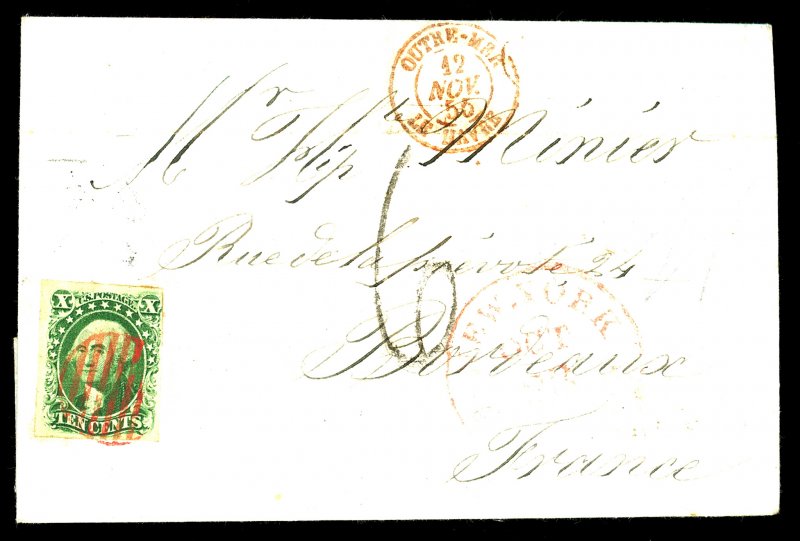 OUTRE-MER
12
NOV.
55
LE HAVRE
Mr Hip te Minier
Rue de la 24
6
X U.S. POSTAGE X
NEW-YORK
Bordeaux
TEN CENTS
France